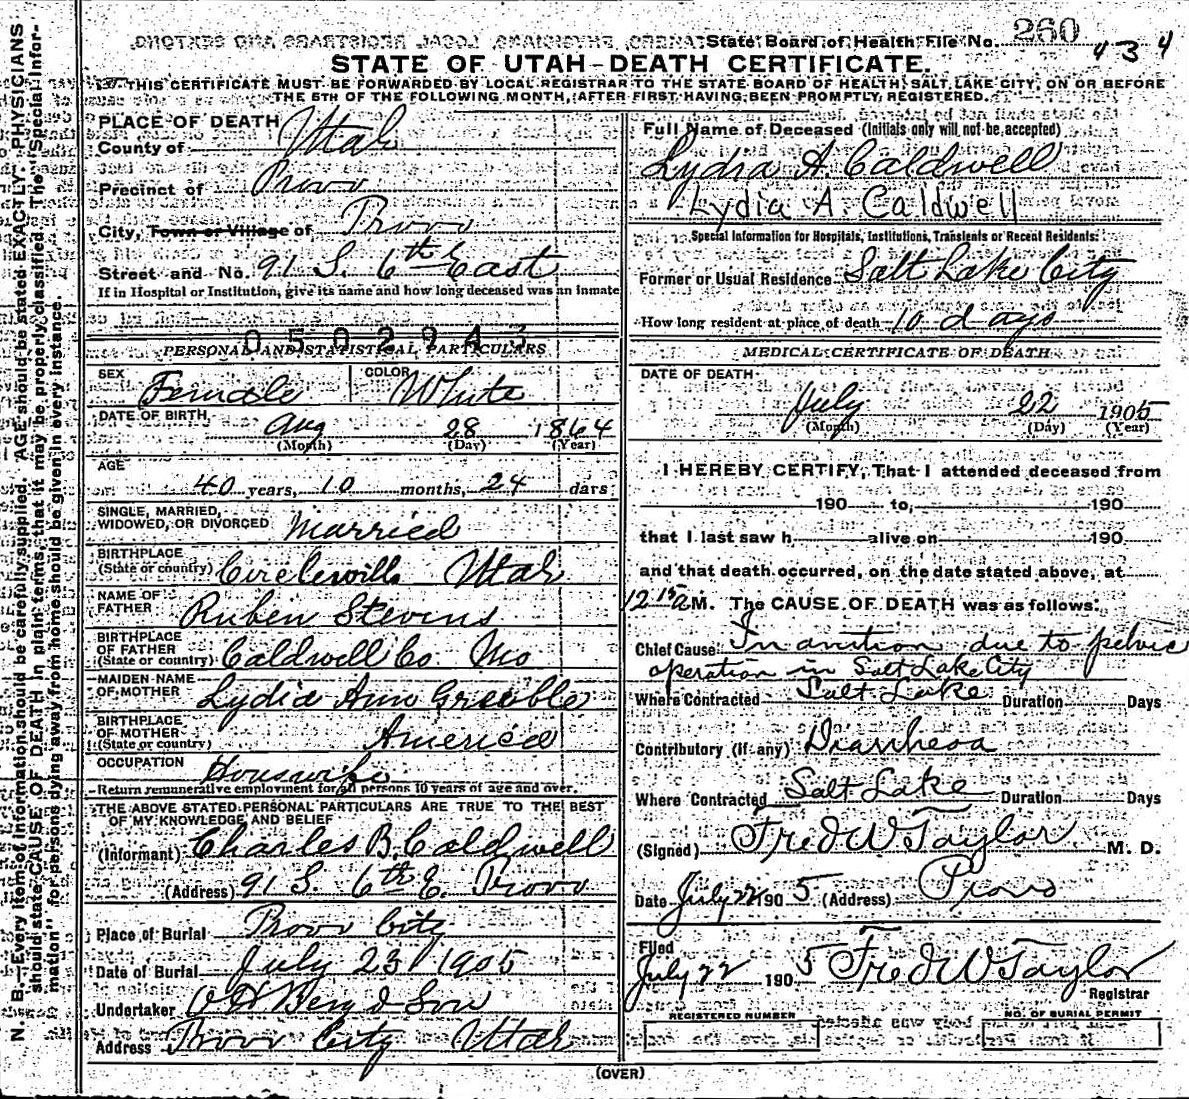 State Board of Health File No. 260
434
STATE OF UTAH—DEATH CERTIFICATE.
THIS CERTIFICATE MUST BE FORWARDED BY LOCAL REGISTRAR TO THE STATE BOARD OF HEALTH, SALT LAKE CITY, ON OR BEFORE
THE 5TH OF THE FOLLOWING MONTH, AFTER FIRST HAVING BEEN PROMPTLY REGISTERED.
N. B.—Every item of information should be carefully supplied. AGE should be stated EXACTLY. PHYSICIANS
should state CAUSE OF DEATH in plain terms, that it may be properly classified. The "Special Infor-
mation" for persons dying away from home should be given in every instance.
PLACE OF DEATH
County of Utah
Precinct of Provo
City, Town or Village of Provo
Street and No. 91 S. 6th East
If in Hospital or Institution, give its name and how long deceased was an inmate
0502943
PERSONAL AND STATISTICAL PARTICULARS
SEX Female COLOR White
DATE OF BIRTH Aug 28 1864
(Month) (Day) (Year)
AGE
40 years, 10 months, 24 days
SINGLE, MARRIED,
WIDOWED, OR DIVORCED Married
BIRTHPLACE
(State or country) Circleville Utah
NAME OF
FATHER Ruben Stevens
BIRTHPLACE
OF FATHER
(State or country) Caldwell Co. Mo
MAIDEN NAME
OF MOTHER Lydia Ann
BIRTHPLACE
OF MOTHER
(State or country) America
OCCUPATION Houswife
Return remunerative employment for all persons 10 years of age and over.
THE ABOVE STATED PERSONAL PARTICULARS ARE TRUE TO THE BEST
OF MY KNOWLEDGE AND BELIEF
(Informant) Charles B. Caldwell
(Address) 91 S. 6th E. Provo
Place of Burial Provo City
Date of Burial July 23 1905
Undertaker O H Berg & Son
Address Provo City Utah
Full Name of Deceased (Initials only will not be accepted)
Lydia A. Caldwell
Lydia A. Caldwell
Special Information for Hospitals, Institutions, Transients or Recent Residents:
Former or Usual Residence Salt Lake City
How long resident at place of death 10 days
MEDICAL CERTIFICATE OF DEATH
DATE OF DEATH
July 22 1905
(Month) (Day) (Year)
I HEREBY CERTIFY, That I attended deceased from
190 to, 190
that I last saw h alive on 190
and that death occurred, on the date stated above, at
12 15 a M. The CAUSE OF DEATH was as follows:
Chief Cause Inanition due to pelvic
operation in Salt Lake City
Where Contracted Salt Lake Duration Days
Contributory (if any) Diarrhea
Where Contracted Salt Lake Duration Days
(Signed) Fred W Taylor M. D.
Date July 22 1905 (Address) Provo
Filed
July 22 1905 Fred W Taylor
Registrar
REGISTERED NUMBER NO. OF BURIAL PERMIT
(OVER)